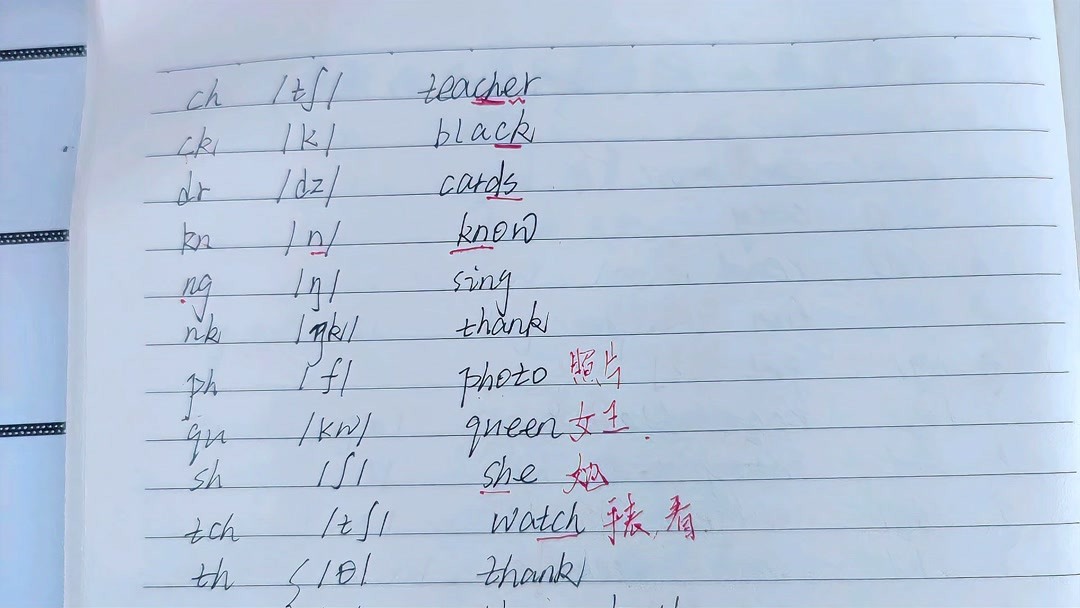 ch /tʃ/ teacher
ck /k/ black
dr /dz/ cards
kn /n/ know
ng /ŋ/ sing
nk /ŋk/ thank
ph /f/ photo 照片
qu /kw/ queen 女王.
sh /ʃ/ she 她
tch /tʃ/ watch 手表,看
th { /θ/ thank